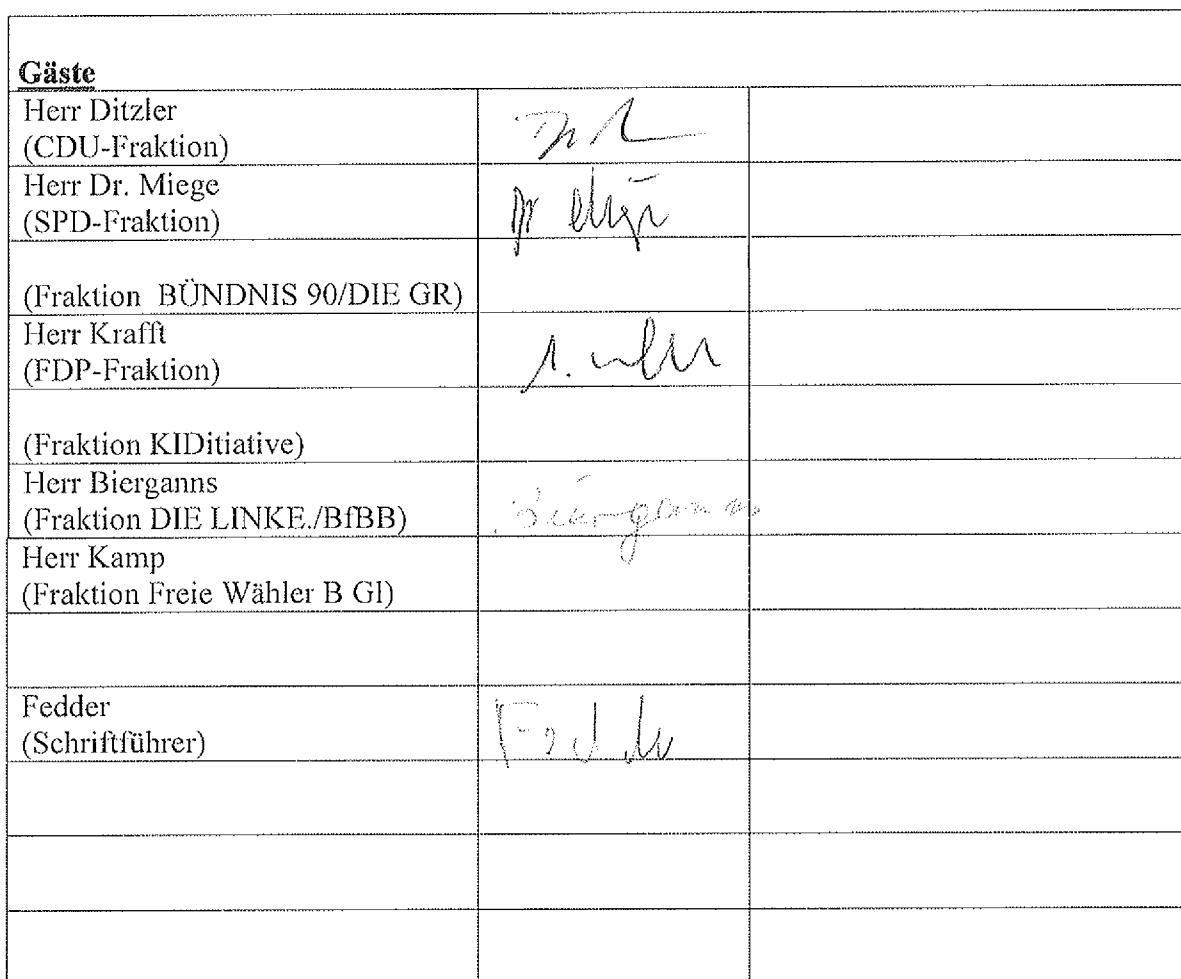 Gäste
Herr Ditzler
(CDU-Fraktion)
Herr Dr. Miege
(SPD-Fraktion)
(Fraktion BÜNDNIS 90/DIE GR)
Herr Krafft
(FDP-Fraktion)
(Fraktion KIDitiative)
Herr Bierganns
(Fraktion DIE LINKE./BfBB)
Bierganns
Herr Kamp
(Fraktion Freie Wähler B Gl)
Fedder
(Schriftführer)
Fedder